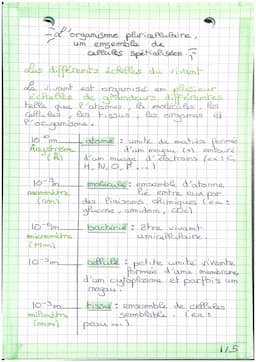 L'organisme pluricellulaire,
un ensemble de
cellules spécialisées
Les différents échelles du vivant
Le vivant est organisé en plusieur
échelles de grandeurs différentes
telle que l'atomes, les molécules, les
cellules, les tissus, les organes et
l'organisme.
10⁻¹⁰m atome : unité de matière formée
Angström d'un noyau (+) entouré
(Å) d'un nuage d'électrons (ex : C,
H, N, O, P ...)
10⁻⁹m molécule : ensemble d'atome
nanomètre lié entre eux par
(nm) des liaisons chimiques (ex :
glucose, amidon, CO2)
10⁻⁶m bactérie : être vivant
micromètre unicellulaire.
(Mm)
10⁻⁵m cellule : petite unité vivante
formée d'une membrane,
d'un cytoplasme et parfois un
noyau.
10⁻³m tissu : ensemble de cellules
millimètre semblable. (ex :
(mm) peau ...)
1/5